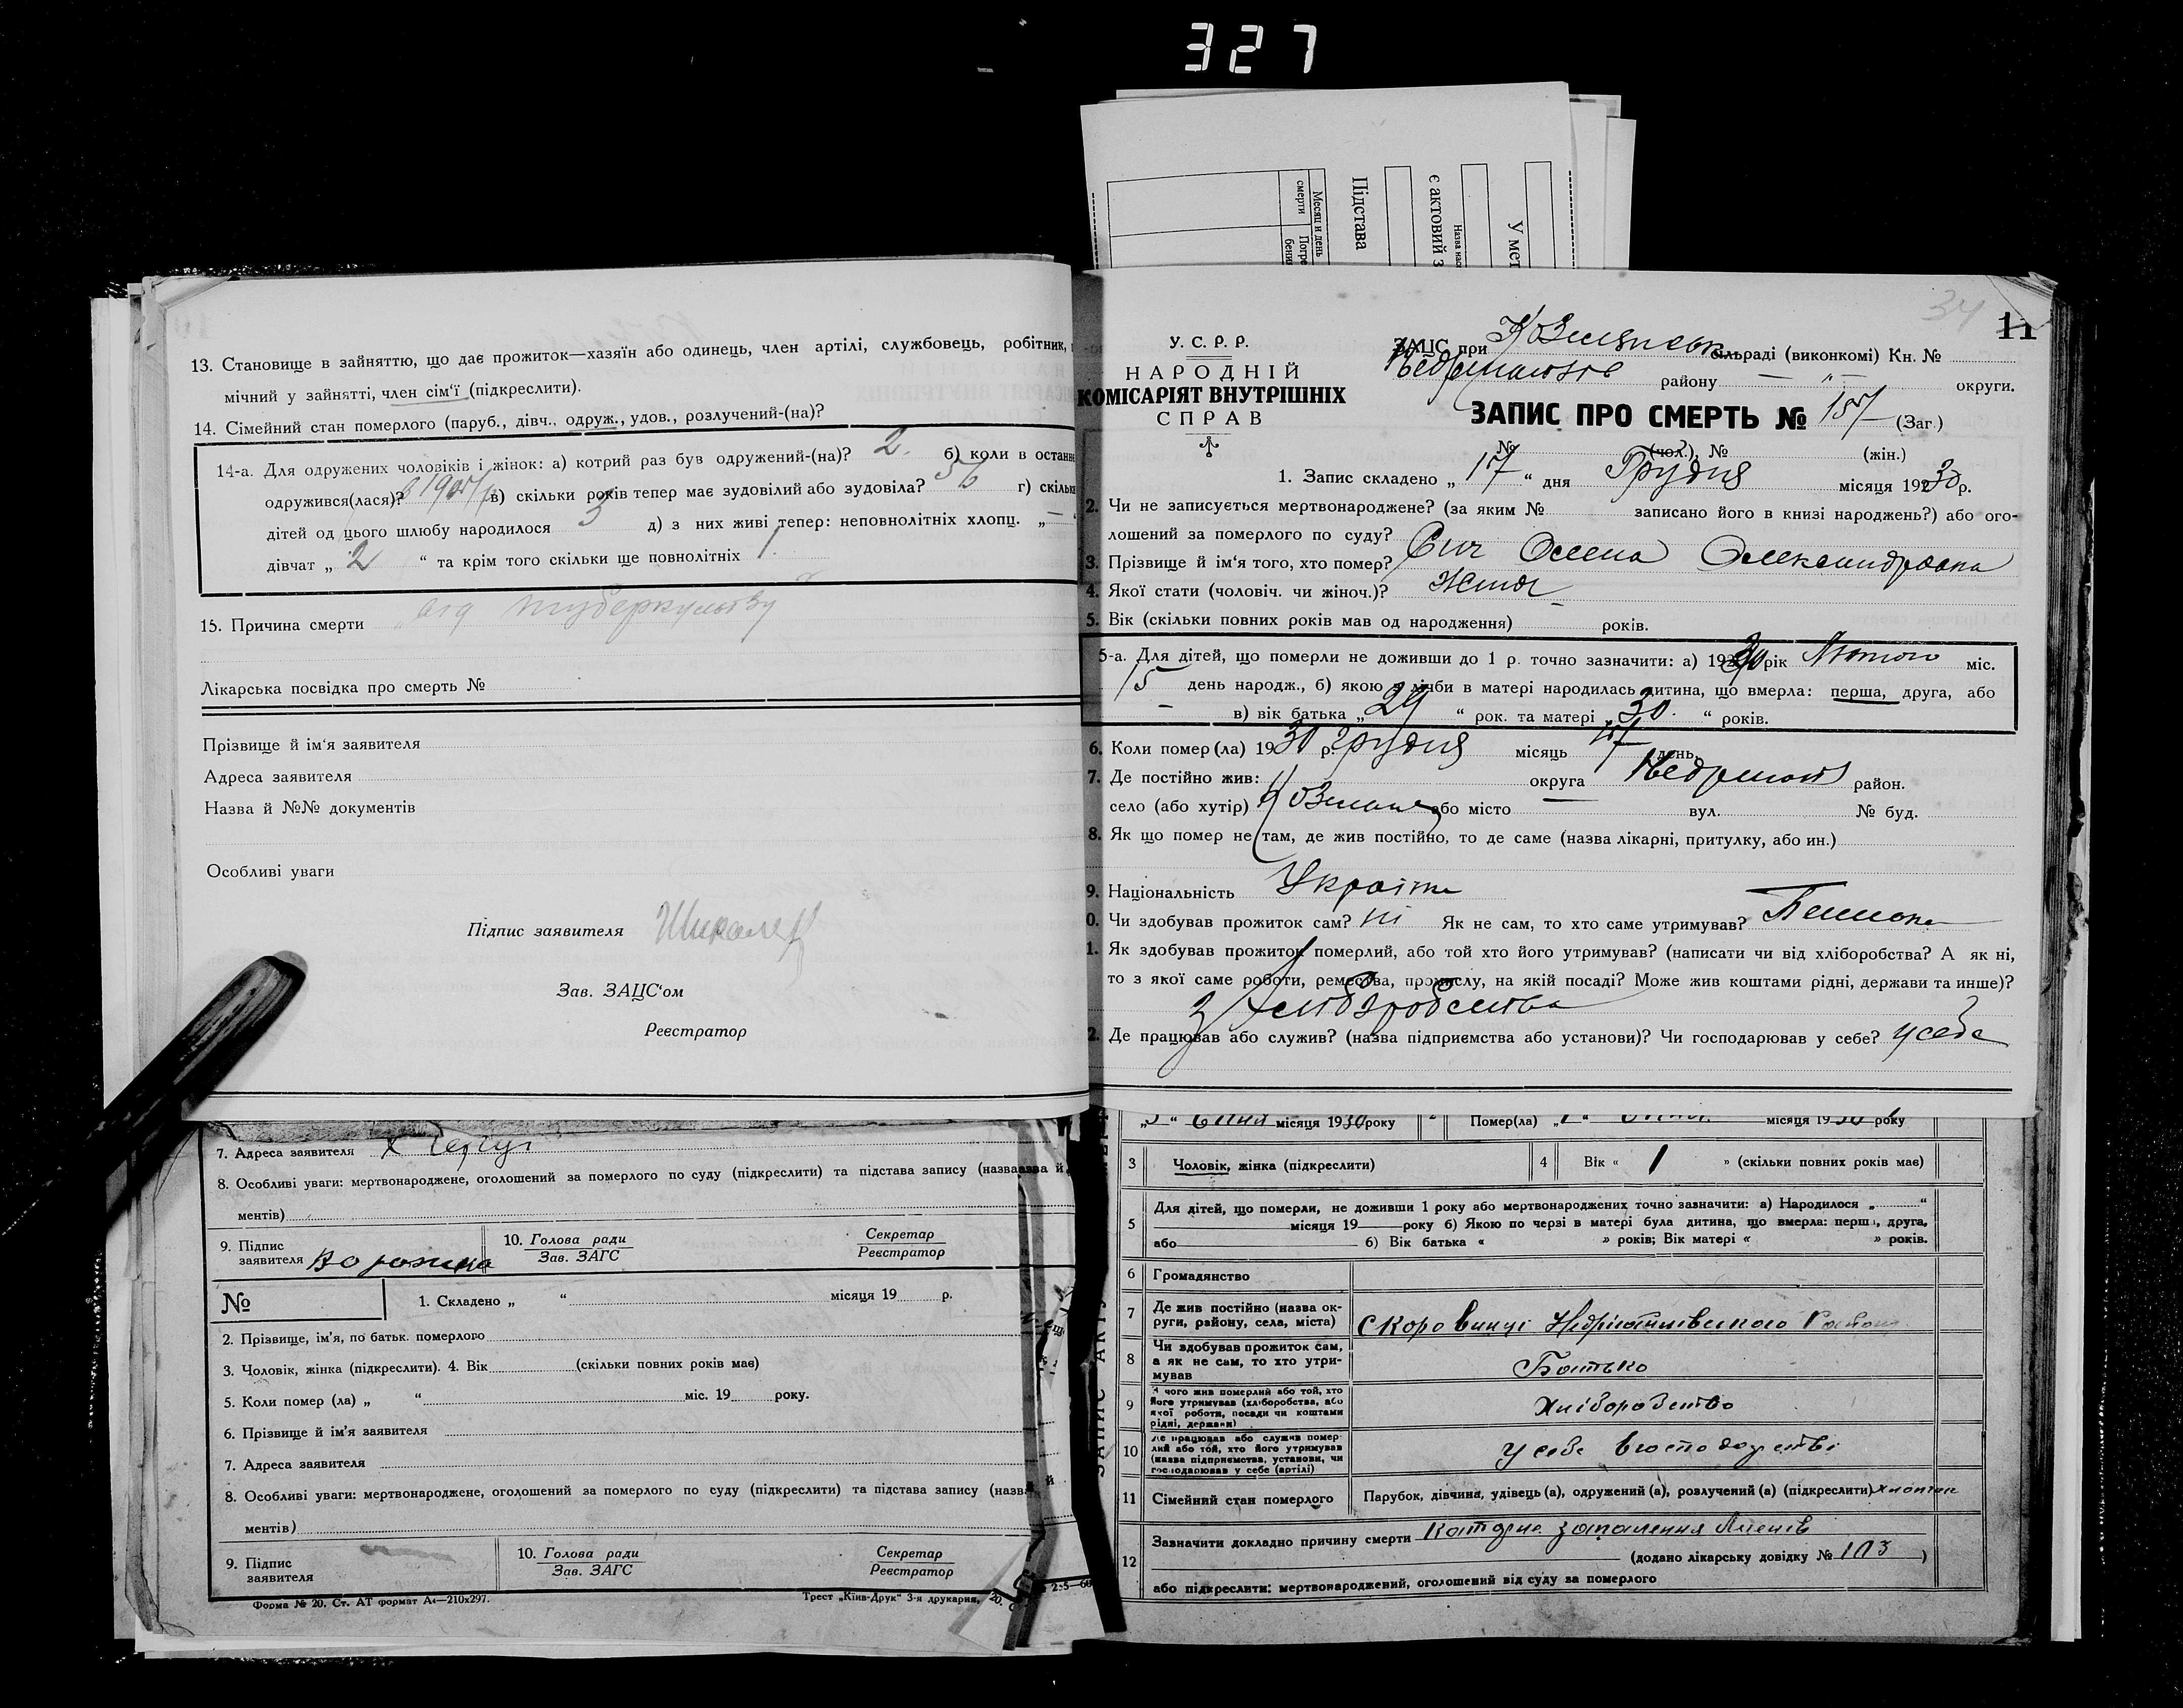 327
Підстава
є актовий з
У мет
Месяц и день
смерти
13. Становище в зайняттю, що дає прожиток—хазяїн або одинець, член артілі, службовець, робітник,
мічний у зайнятті, член сім‘ї (підкреслити).
14. Сімейний стан померлого (паруб., дівч., одруж., удов., розлучений-(на)?
14-а. Для одружених чоловіків і жінок: а) котрий раз був одружений-(на)? 2. б) коли в останн
одружився(лася)? в) скільки років тепер має зудовілий або зудовіла? 56 г) скільк
дітей од цього шлюбу народилося 3 д) з них живі тепер: неповнолітніх хлопц. „ —
дівчат „ 2 “ та крім того скільки ще повнолітніх 1.
15. Причина смерти від туберкульозу
Лікарська посвідка про смерть №
Прізвище й ім‘я заявителя
Адреса заявителя
Назва й №№ документів
Особливі уваги
Підпис заявителя
Зав. ЗАЦС‘ом
Реєстратор
34
11
У. С. Р. Р.
НАРОДНІЙ
КОМІСАРІЯТ ВНУТРІШНІХ
СПРАВ
ЗАЦС при сільраді (виконкомі) Кн. №
району — „ — округи.
ЗАПИС ПРО СМЕРТЬ № 157 (Заг.)
№ (чол.), № (жін.)
1. Запис складено „ 17 “ дня Грудня місяця 1930 р.
2. Чи не записується мертвонароджене? (за яким № записано його в книзі народжень?) або ого-
лошений за померлого по суду?
3. Прізвище й ім‘я того, хто помер? Сич Олена Олександровна
4. Якої стати (чоловіч. чи жіноч.)?
5. Вік (скільки повних років мав од народження) років.
5-а. Для дітей, що померли не доживши до 1 р. точно зазначити: а) 1930 рік Лютого міс.
15 день народж., б) якою з ліліби в матері народилась дитина, що вмерла: перша, друга, або
в) вік батька „ 29 “ рок. та матері „ 30. “ років.
6. Коли помер(ла) 1930 р. грудня місяць 17 день.
7. Де постійно жив: округа район.
село (або хутір) або місто вул. № буд.
8. Як що помер не там, де жив постійно, то де саме (назва лікарні, притулку, або ин.)
9. Національність
0. Чи здобував прожиток сам? ні Як не сам, то хто саме утримував?
1. Як здобував прожиток померлий, або той хто його утримував? (написати чи від хліборобства? А як ні,
то з якої саме роботи, ремества, промислу, на якій посаді? Може жив коштами рідні, держави та инше)?
з хліборобства
2. Де працював або служив? (назва підприємства або установи)? Чи господарював у себе? у себе
7. Адреса заявителя
8. Особливі уваги: мертвонароджене, оголошений за померлого по суду (підкреслити) та підстава запису (назва й
ментів)
9. Підпис заявителя
10. Голова ради Зав. ЗАГС
Секретар Реєстратор
№
1. Складено „ “ місяця 19 р.
2. Прізвище, ім‘я, по батьк. померлого
3. Чоловік, жінка (підкреслити). 4. Вік (скільки повних років має)
5. Коли помер (ла) „ “ міс. 19 року.
6. Прізвище й ім‘я заявителя
7. Адреса заявителя
8. Особливі уваги: мертвонароджене, оголошений за померлого по суду (підкреслити) та підстава запису (назва й
ментів)
9. Підпис заявителя
10. Голова ради Зав. ЗАГС
Секретар Реєстратор
Форма № 20. Ст. АТ формат А4—210х297.
Трест „Київ-Друк“ 3-я друкарня.
місяця 1930 року
Помер(ла) місяця 1930 року
3 Чоловік, жінка (підкреслити)
4 Вік « 1 » (скільки повних років має)
5 Для дітей, що померли, не доживши 1 року або мертвонароджених точно зазначити: а) Народилося „ “
місяця 19 року б) Якою по черзі в матері була дитина, що вмерла: перша, друга,
або б) Вік батька « » років; Вік матері « » років.
6 Громадянство
7 Де жив постійно (назва ок-
руги, району, села, міста)
8 Чи здобував прожиток сам,
а як не сам, то хто утри-
мував
Батько
9 З чого жив померлий або той, хто
його утримував (хліборобства, або
якої роботи, посади чи коштами
рідні, держави)
Хліборобство
10 Де працював або служив помер-
лий або той, хто його утримував
(назва підприємства, установи, чи
господарював у себе (артілі)
у себе в господарстві
11 Сімейний стан померлого Парубок, дівчина, удівець(а), одружений(а), розлучений(а) (підкреслити)
12 Зазначити докладно причину смерти запалення
(додано лікарську довідку № 103 )
або підкреслити: мертвонароджений, оголошений від суду за померлого